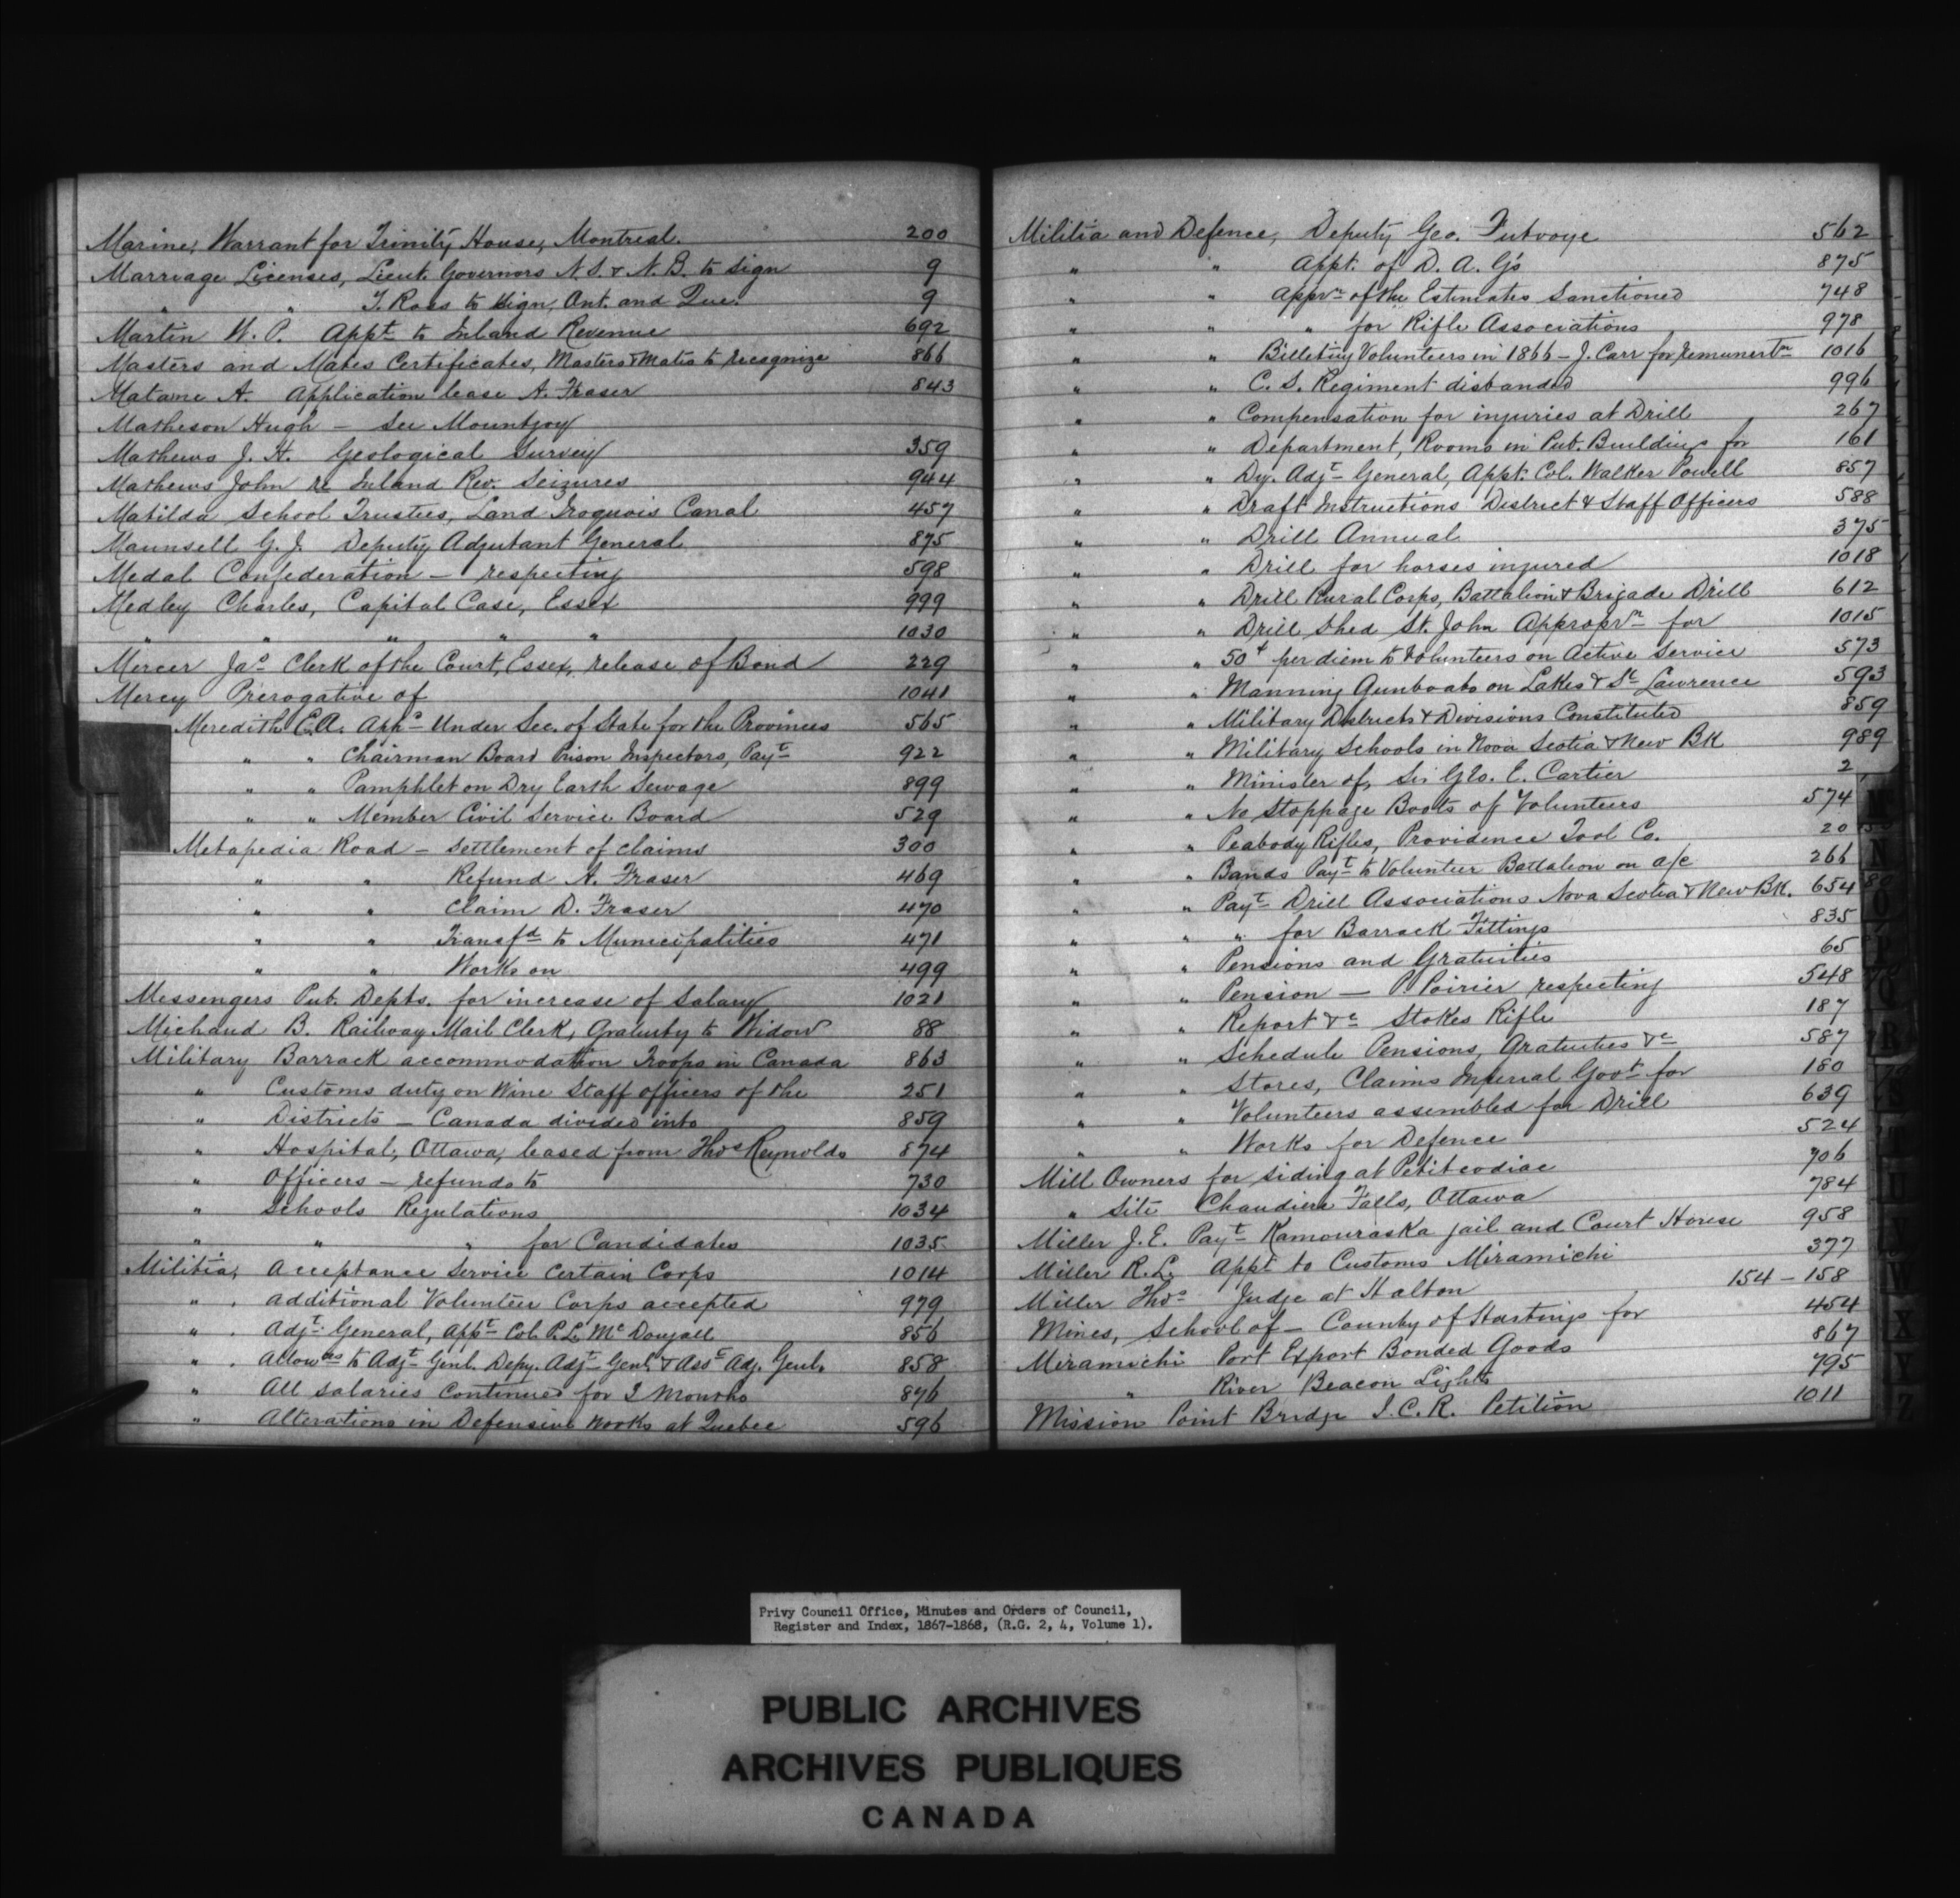 Marine, Warrant for Trinity House, Montreal. 200
Marriage Licenses, Lieut. Governors N.S. & N.B. to sign 9
" " T. Ross to sign, Ont. and Que. 9
Martin W. P. Appt to Inland Revenue 692
Masters and Mates Certificates, Masters & Mates to recognize 866
Matane A. Application lease A. Fraser 843
Matheson Hugh — See Mountjoy
Mathews J. H. Geological Survey 359
Mathews John re Inland Rev. Seizures 944
Matilda School Trustees, Land Iroquois Canal 457
Maunsell G. J. Deputy Adjutant General 875
Medal Confederation — respecting 598
Medley Charles, Capital Case, Essex 999
" " " " " 1030
Mercer Jas Clerk of the Court, Essex, release of Bond 229
Mercy Prerogative of 1041
Meredith E.A. Appt Under Sec. of State for the Provinces 565
" " Chairman Board Prison Inspectors, Payt 922
" " Pamphlet on Dry Earth Sewage 899
" " Member Civil Service Board 529
Metapedia Road — Settlement of claims 300
" " Refund A. Fraser 469
" " Claim D. Fraser 470
" " Transfd to Municipalities 471
" " Works on 499
Messengers Pub. Depts. for increase of Salary 1021
Michaud B. Railway Mail Clerk, Gratuity to Widow 88
Military Barrack accommodation Troops in Canada 863
" Customs duty on Wine Staff officers of the 251
" Districts — Canada divided into 859
" Hospital, Ottawa, leased from Thos Reynolds 874
" Officers — refunds to 730
" Schools Regulations 1034
" " " for Candidates 1035
Militia, Acceptance Service Certain Corps 1014
" . Additional Volunteer Corps accepted 979
" . Adjt General, Appt Col. P.L. McDougall 856
" . Allowces to Adjt Genl. Depy. Adjt Genl. & Asst Adj. Genl. 858
" All salaries continued for 2 Months 876
" Alterations in Defensive works at Quebec 596
Militia and Defence, Deputy Geo. Futvoye 562
" " Appt. of D. A. G's 875
" " Apprn of the Estimates Sanctioned 748
" " " for Rifle Associations 978
" " Billeting Volunteers in 1866 — J. Carr for remunertn 1016
" " C. S. Regiment disbanded 996
" " Compensation for injuries at Drill 267
" " Department, Rooms in Pub. Buildings for 161
" " Dy. Adjt General, Appt. Col. Walker Powell 857
" " Draft Instructions District & Staff Officers 588
" " Drill Annual 375
" " Drill for horses injured 1018
" " Drill Rural Corps, Battalion & Brigade Drill 612
" " Drill Shed St. John Approprn for 1015
" " 50 per diem to Volunteers on Active Service 573
" " Manning Gunboats on Lakes & St Lawrence 593
" " Military Districts & Divisions Constituted 859
" " Military Schools in Nova Scotia & New BK 989
" " Minister of, Sir Geo. E. Cartier 2
" " No Stoppage Boots of Volunteers 574
" " Peabody Rifles, Providence Tool Co. 20
" " Bands Payt to Volunteer Battalion on a/c 266
" " Payt Drill Associations Nova Scotia & New BK. 654
" " " for Barrack Fittings 835
" " Pensions and Gratuities 65
" " Pension — P. Poirier respecting 548
" " Report &c Stokes Rifle 187
" " Schedule Pensions, Gratuities &c 587
" " Stores, Claims Imperial Govt for 180
" " Volunteers assembled for Drill 639
" " Works for Defence 524
Mill Owners for siding at Petitcodiac 706
" Site Chaudiere Falls, Ottawa 784
Miller J. E. Payt Kamouraska jail and Court House 958
Miller R. L. Appt to Customs Miramichi 377
Miller Thos Judge at Halton 154 — 158
Mines, School of — County of Hastings for 454
Miramichi Port Export Bonded Goods 867
" River Beacon Lights 795
Mission Point Bridge I.C.R. Petition 1011
N
O
R
W
X
Privy Council Office, Minutes and Orders of Council,
Register and Index, 1867-1868, (R.G. 2, 4, Volume 1).
PUBLIC ARCHIVES
ARCHIVES PUBLIQUES
CANADA